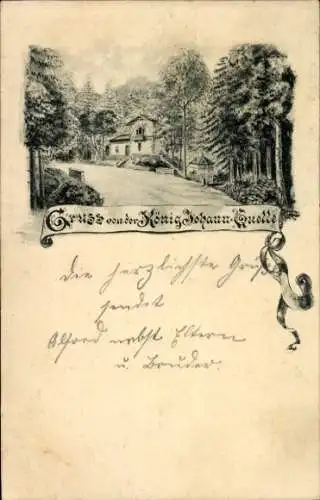 Gruss von der König Johann-Quelle
Die herzlichste Grüße
sendet
Alfred nebst Eltern
u. Bruder.